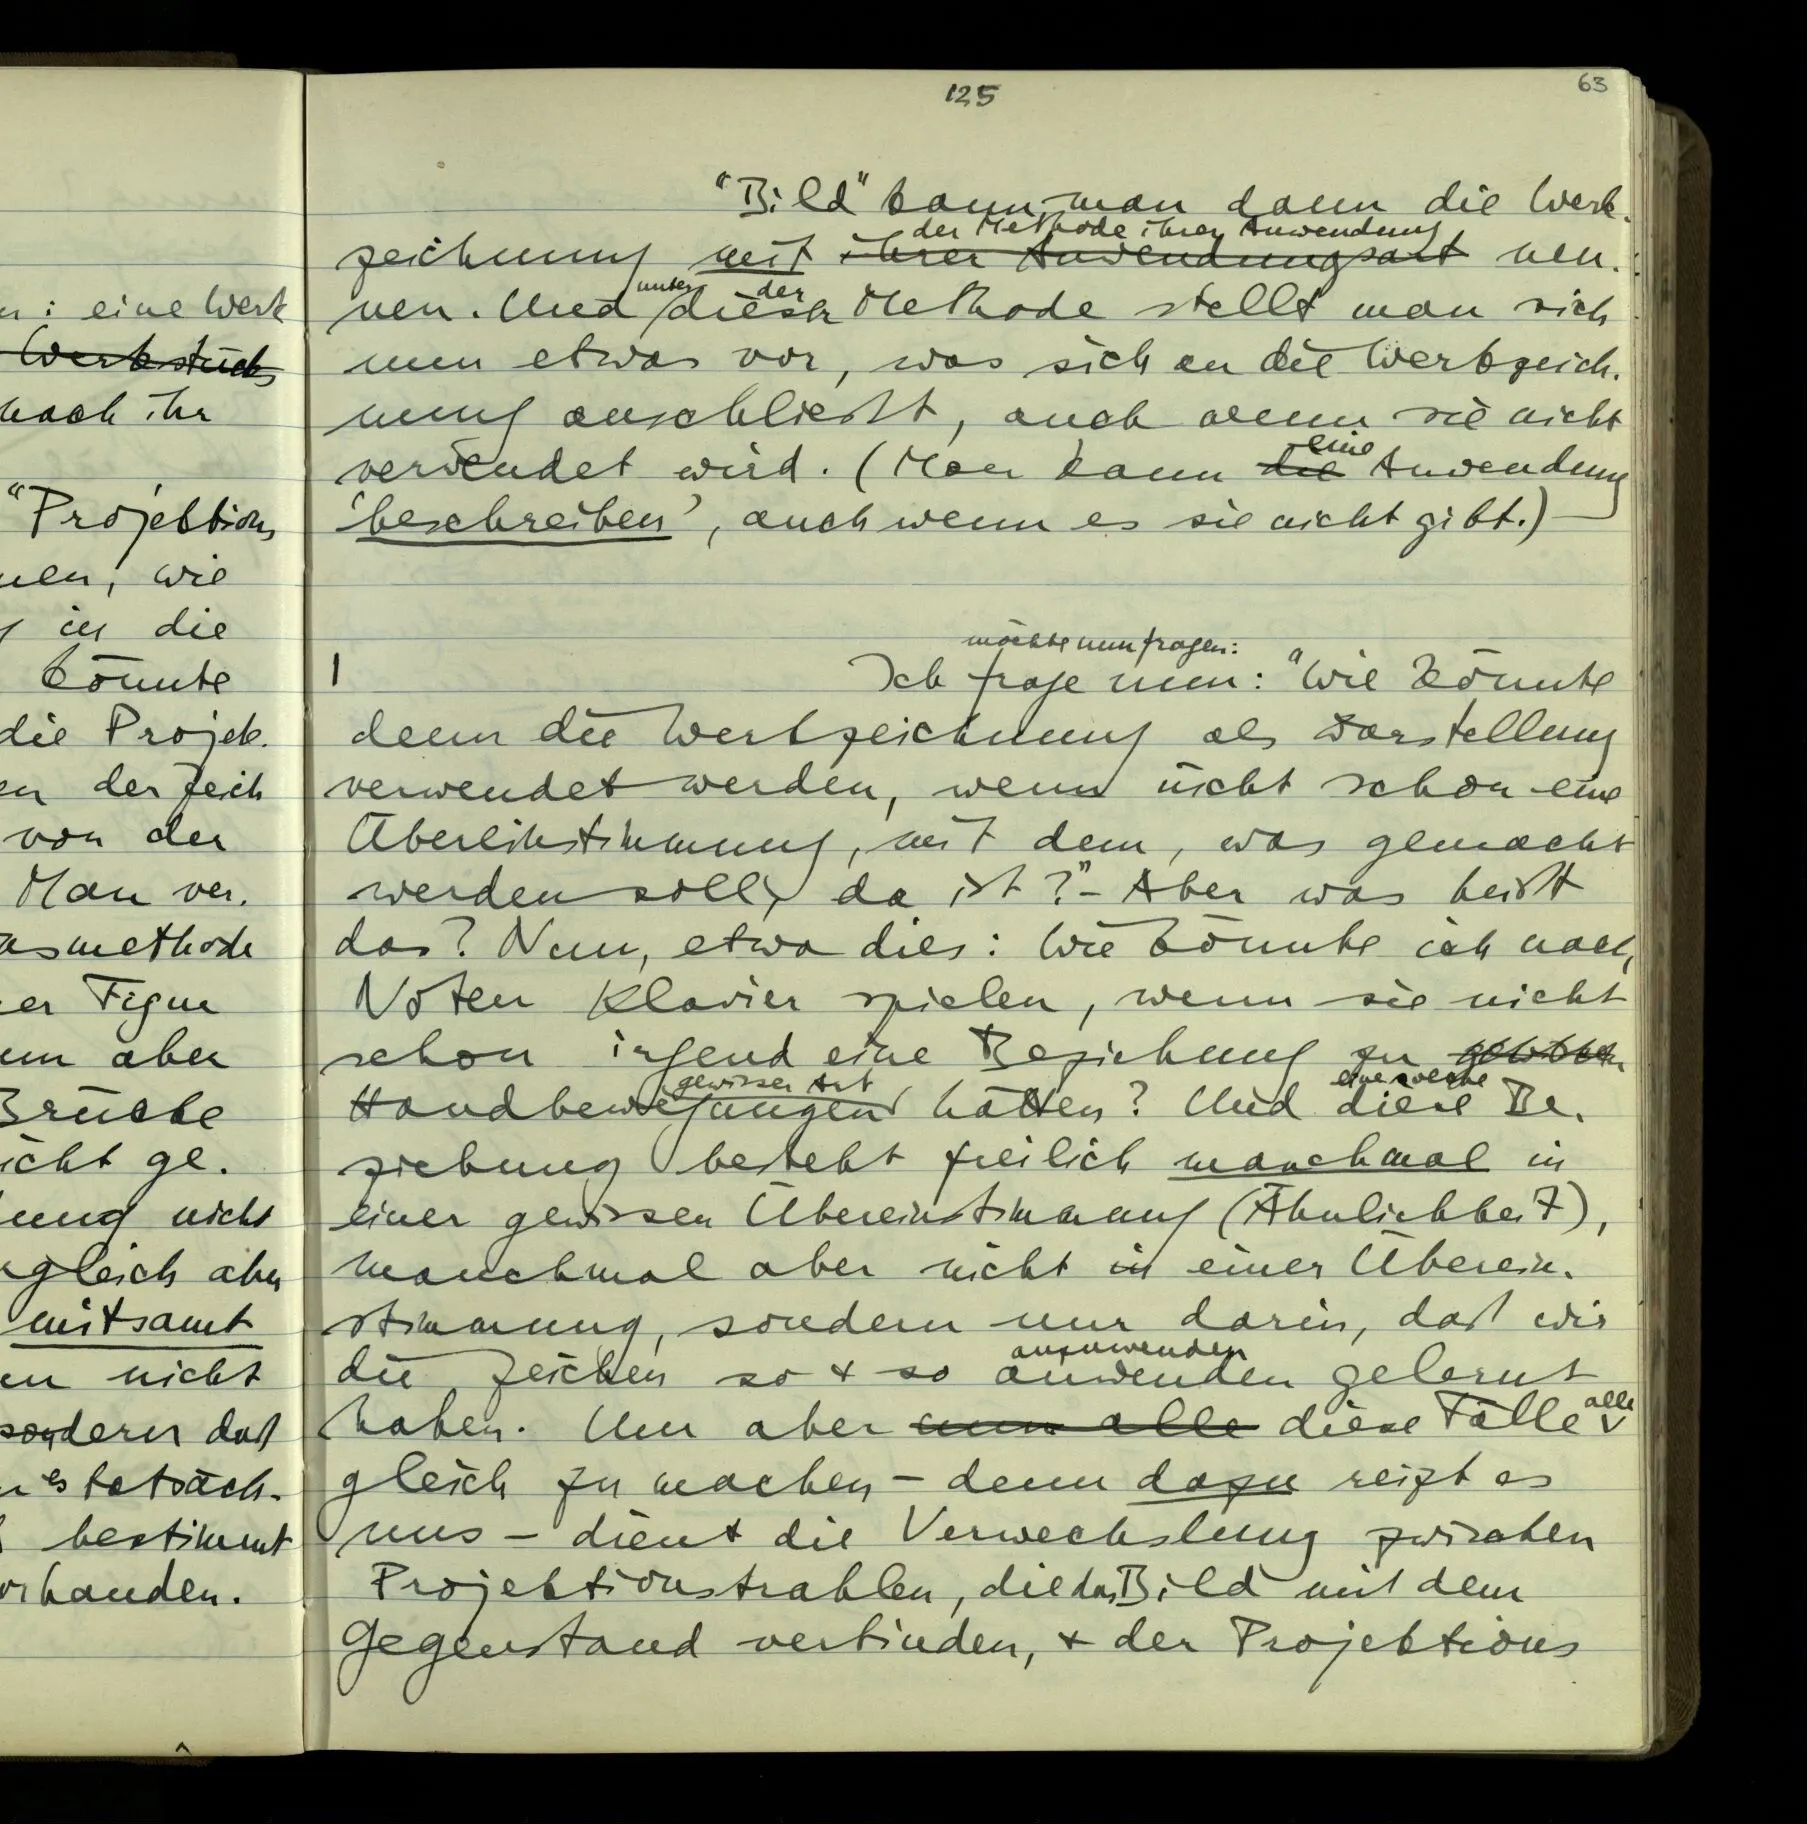 n: eine Werk
Werkstück
nach ihr
"Projektions
nen, wie
in die
könnte
die Projek-
en der Zeich
von der
Man ver-
nsmethode
er Figur
um aber
Brücke
icht ge-
nung nicht
gleich aber
mitsamt
en nicht
sondern daß
es tatsäch-
bestimmt
orhanden.
125
63
"Bild" kann man dann die Werk-
der Methode ihrer Anwendung
zeichnung mit ihrer Anwendungsart nen-
unter der
nen. Und dieser Methode stellt man sich
nun etwas vor, was sich an die Werkzeich-
nung anschließt, auch wenn sie nicht
eine
verwendet wird. (Man kann die Anwendung
'beschreiben', auch wenn es sie nicht gibt.)
möchte nun fragen:
| Ich frage nun: "Wie könnte
denn die Werkzeichnung als Darstellung
verwendet werden, wenn nicht schon eine
Übereinstimmung, mit dem, was gemacht
werden soll, da ist?" – Aber was heißt
das? Nun, etwa dies: Wie könnte ich nach
Noten Klavier spielen, wenn sie nicht
schon irgend eine Beziehung zu gewissen
gewisser Art eine solche
Handbewegungen hätten? Und diese Be-
ziehung besteht freilich manchmal in
einer gewissen Übereinstimmung (Ähnlichkeit),
manchmal aber nicht in einer Überein-
stimmung, sondern nur darin, daß wir
anzuwenden
die Zeichen so & so anwenden gelernt
alle
haben. Um aber nun alle diese Fälle
gleich zu machen – denn dazu reizt es
uns – dient die Verwechslung zwischen
Projektionstrahlen, die das Bild mit dem
Gegenstand verbinden, & der Projektions